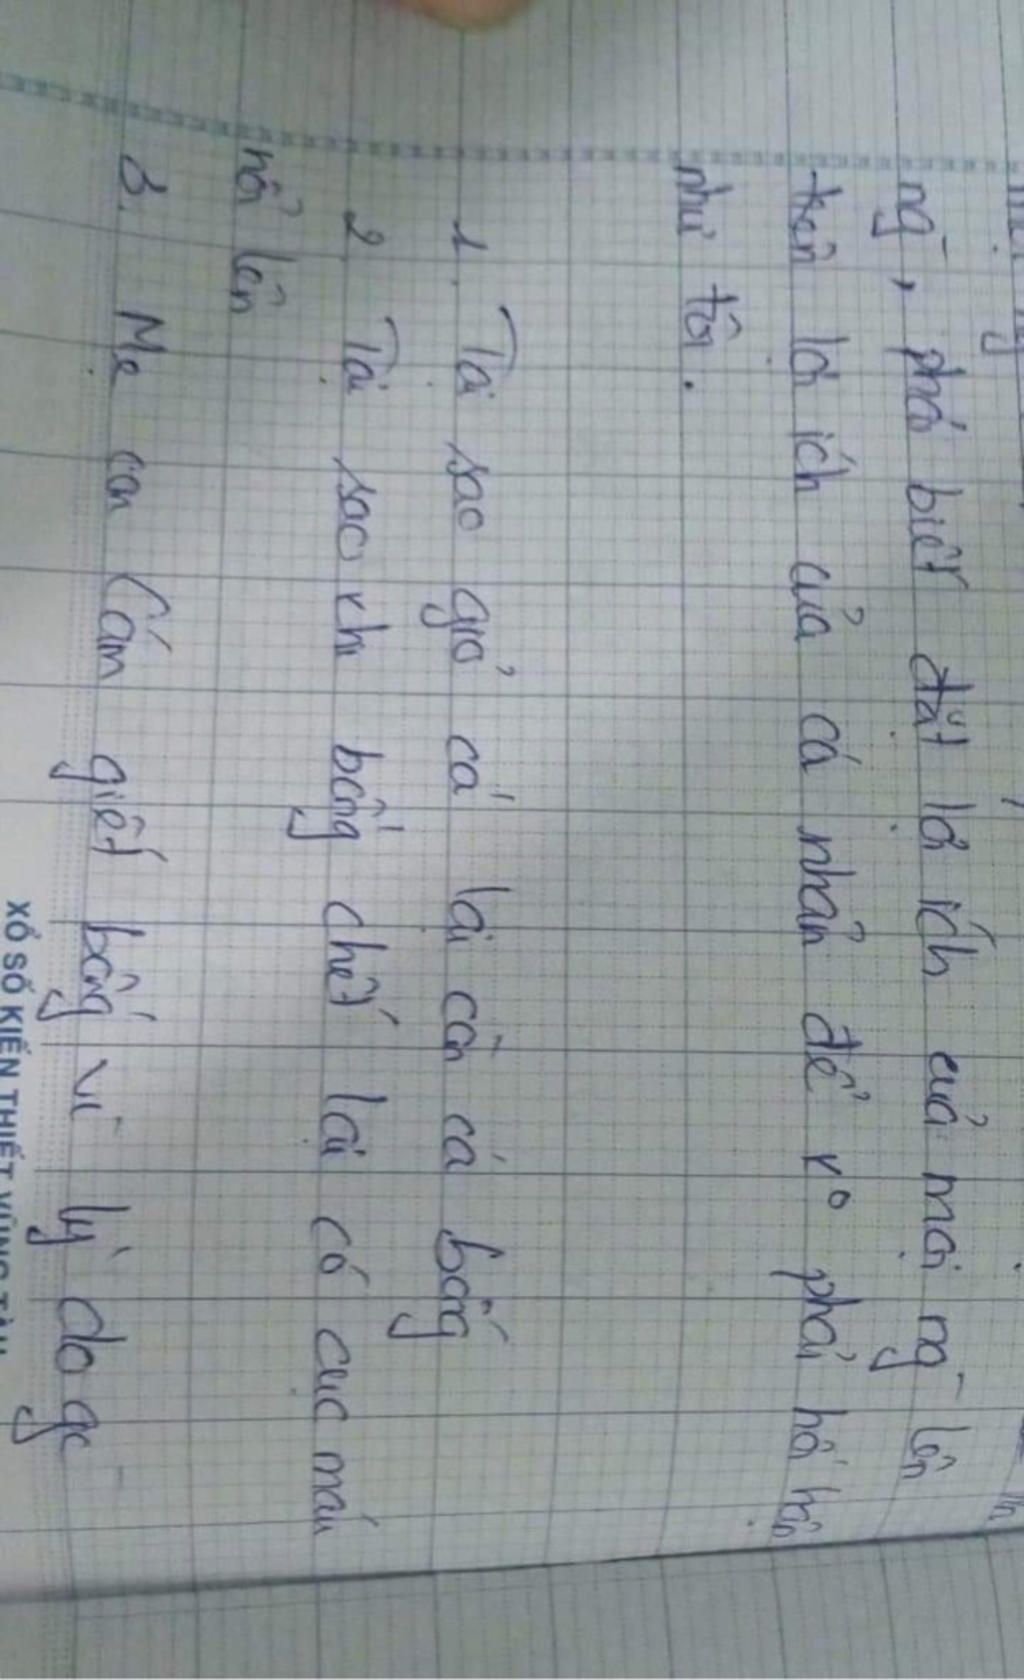 ng~, phá biết đặt lợi ích của mọi ng~ lên
trên lợi ích của cá nhân để k° phải hối hận
như tôi.
1. Tại sao giỏ cá lại còn cá bống
2. Tại sao khi bống chết lại có cục máu
nổi lên
3. Mẹ con Cám giết bống vì lý do gì
XỔ SỐ KIẾN THIẾT VŨNG TÀU